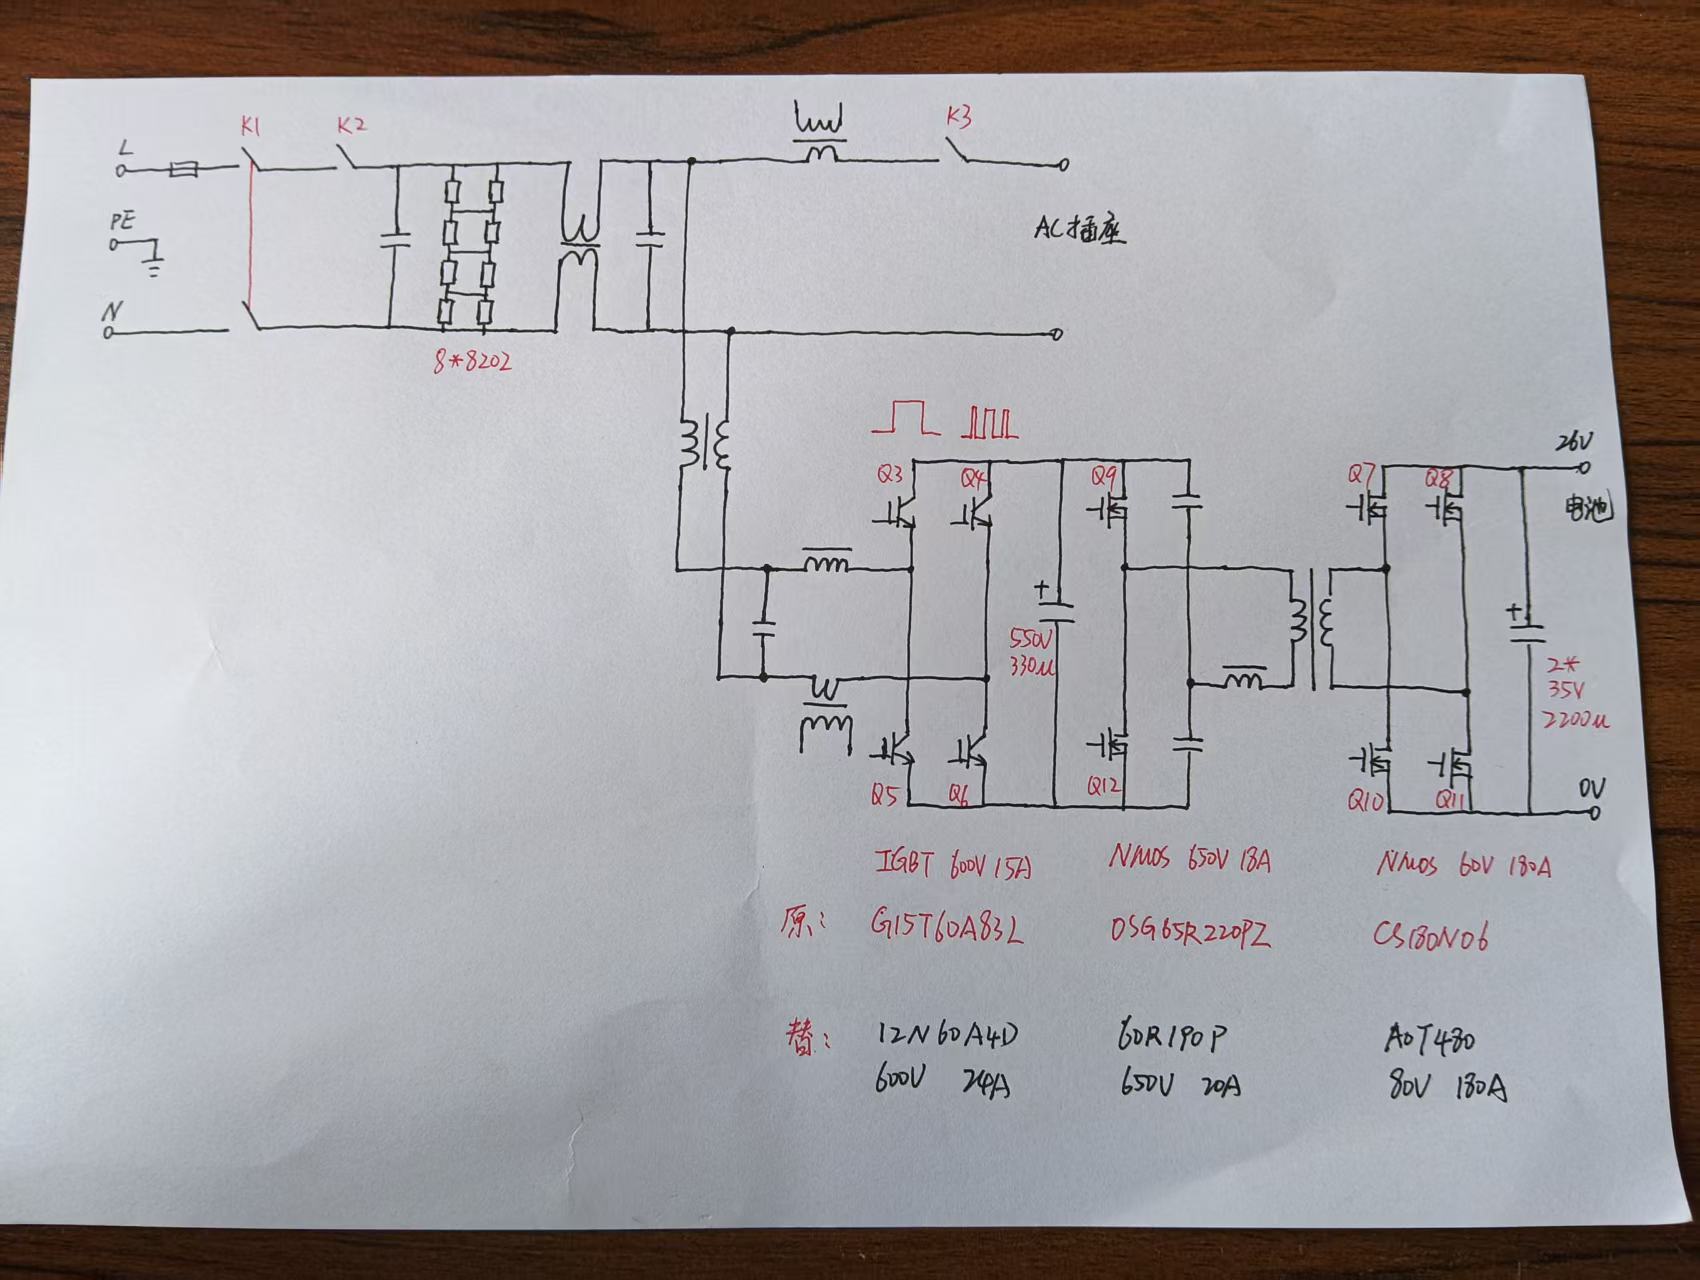 L
K1
K2
K3
PE
N
8*8202
AC插座
26V
电池
Q3
Q4
Q9
Q7
Q8
+
550V
330u
+
2*
35V
2200u
Q5
Q6
Q12
Q10
Q11
0V
IGBT 600V 15A
NMOS 650V 18A
NMOS 60V 180A
原:
G15T60A83L
OSG65R220PZ
CS180N06
替:
12N60A4D
60R190P
AOT480
600V 24A
650V 20A
80V 180A